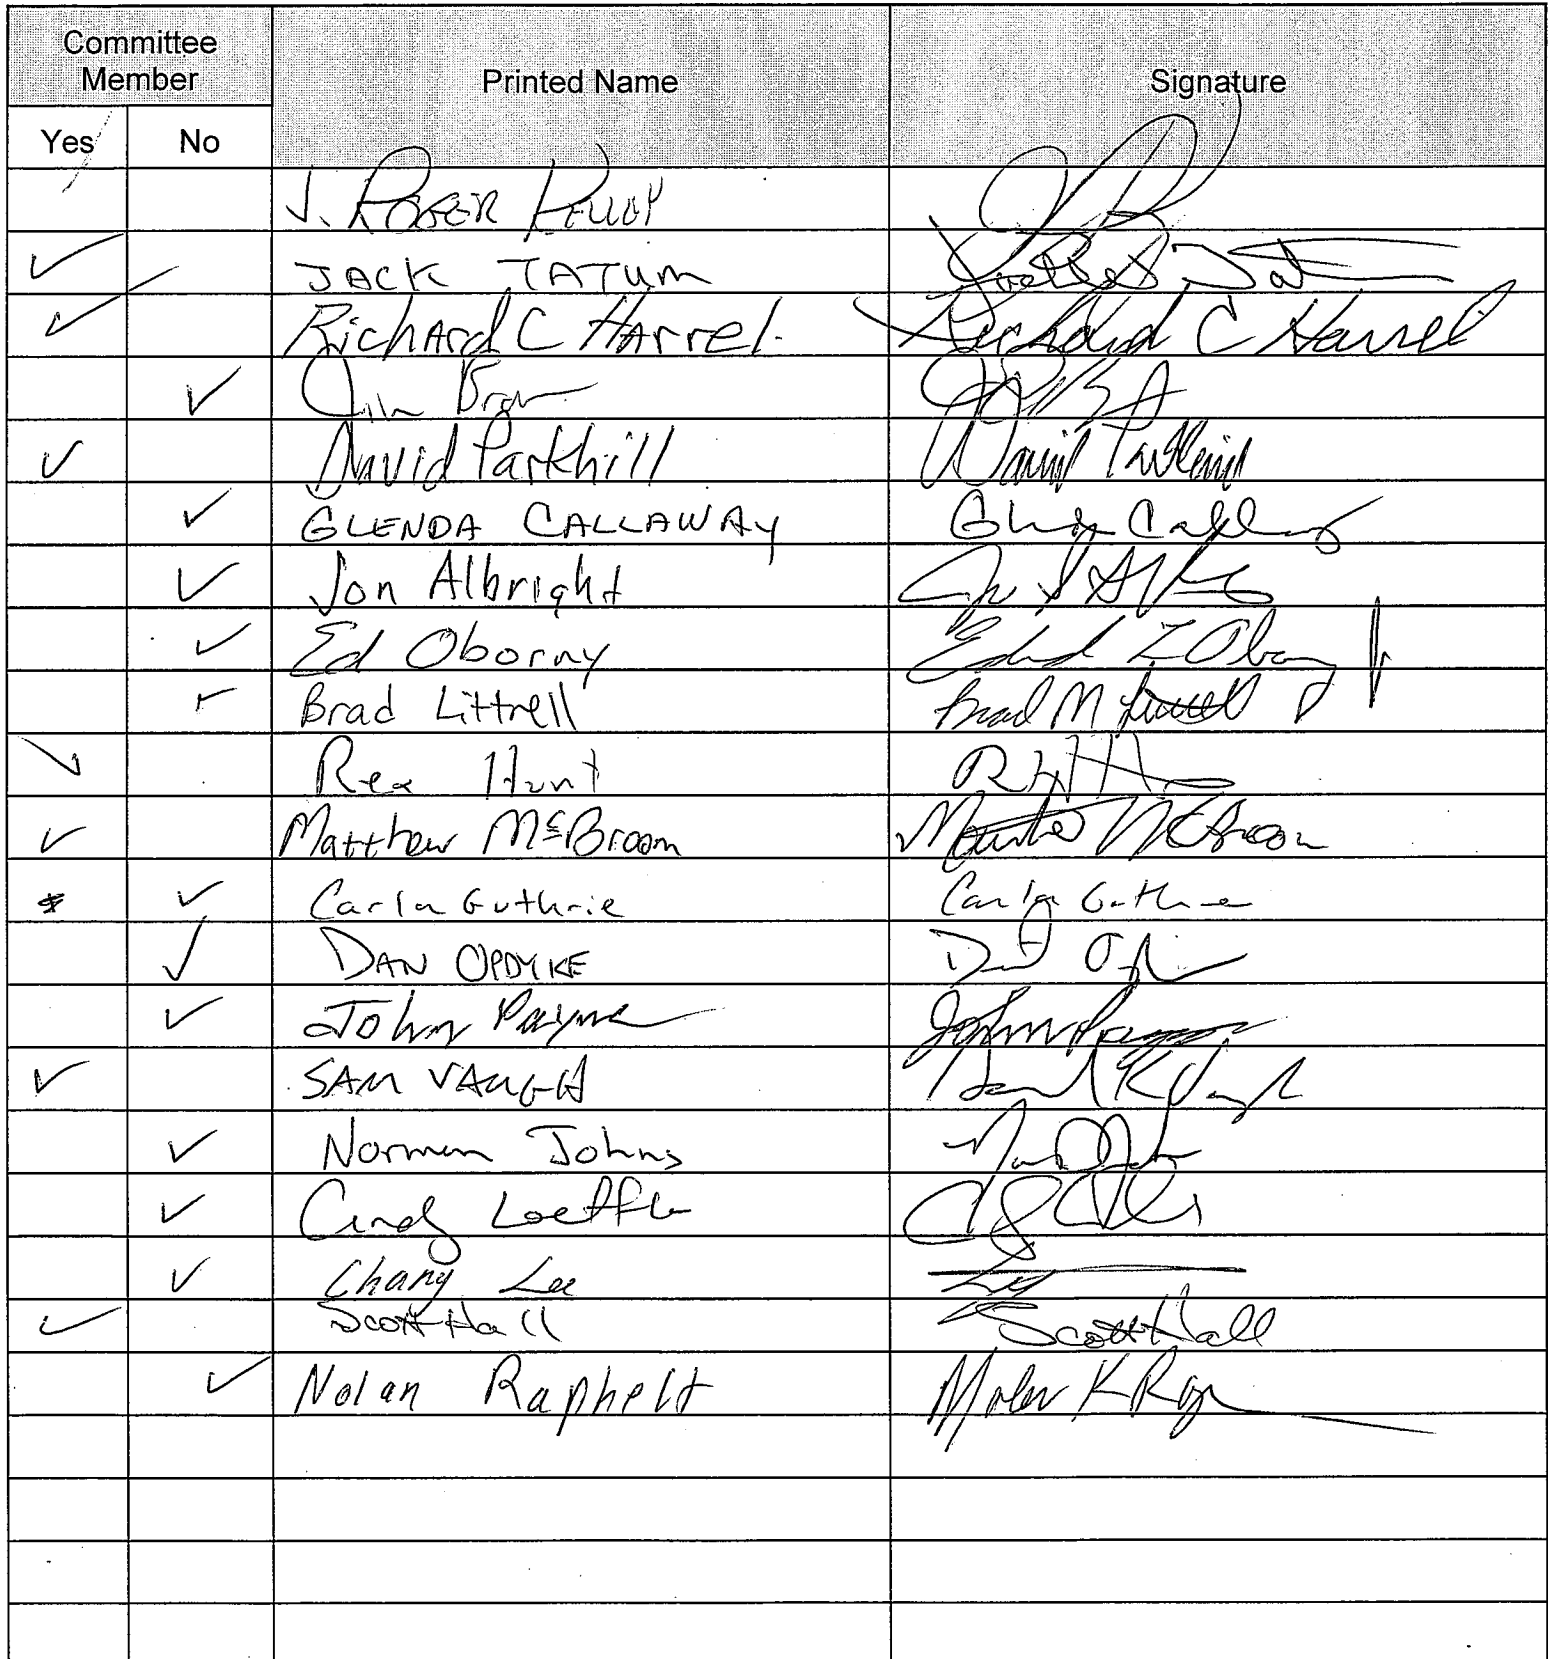 Committee Member
Printed Name
Signature
Yes
No
J. ROGER KELLEY
✓ JACK TATUM
✓ Richard C Harrel. Richard C Harrel
✓ Jim Brown
✓ David Parkhill David Parkhill
✓ GLENDA CALLAWAY Glenda Callaway
✓ Jon Albright
✓ Ed Oborny Edmund L Oborny Jr
✓ Brad Littrell Brad M Littrell
✓ Rex Hunt
✓ Matthew McBroom Matthew McBroom
✓ Carla Guthrie Carla Guthrie
✓ DAN OPDYKE
✓ John Payne John Payne
✓ SAM VAUGH
✓ Norman Johns
✓ Cindy Loeffler
✓ Chang Lee Lee
✓ Scott Hall Scott Hall
✓ Nolan Raphelt